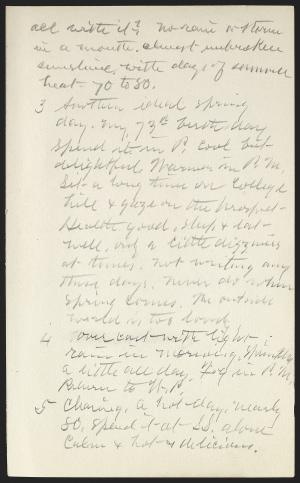 all with it. No rain or storm
in a month. Almost unbroken
sunshine, with days of summer
heat - 70 to 80.
3 Another ideal spring
day. My 73d birth day
Spend it in P. Cool but
delightful. Warmer in P.M.
Sit a long time on College
Hill & gaze on the prospect -
Health good, sleep & eat
well, only a little dizziness
at times. Not writing any
these days. Never do when
Spring comes. The outside
world is too loud.
4 Over cast with light
rain in morning, Sprinkles
a little all day. Fog in P.M.
Return to W.P.
5 Clearing, a hot day, nearly
80, Spend it at SS. alone
Calm & hot & delicious.